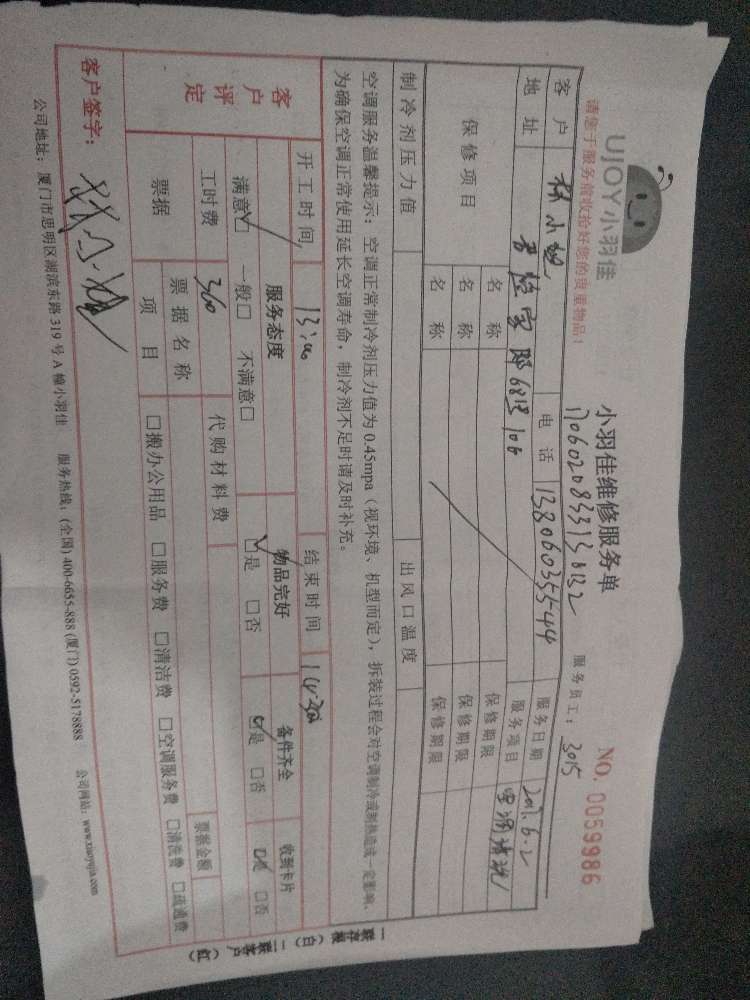 UJOY小羽佳
小羽佳维修服务单
NO. 0059986
请您于服务前收拾好您的贵重物品！
服务员工：3015
客户 林小姐 电话 13806035544 服务日期 2017.6.2
地址 68号106 服务项目 空调清洗
保修项目 名称 保修期限
名称 保修期限
名称 保修期限
制冷剂压力值 出风口温度
空调服务温馨提示：空调正常制冷剂压力值为0.45mpa（视环境、机型而定），拆装过程会对空调制冷或制热造成一定影响，
为确保空调正常使用延长空调寿命，制冷剂不足时请及时补充。
开工时间 13:00 结束时间
客户评定 服务态度 物品完好 备件齐全 收到卡片
满意☑ 一般□ 不满意□ ☑是 □否 ☑是 □否 ☑是 □否
工时费 360 代购材料费
票据 票据名称 票据金额
项目 □搬办公用品 □服务费 □清洁费 □空调服务费 □清洗费 □疏通费
客户签字：
公司地址：厦门市思明区湖滨东路319号A幢小羽佳 服务热线：(全国) 400-6655-888 (厦门) 0592-5178888 公司网站：www.xiaoyujia.com
一联存根（白） 二联客户（红）